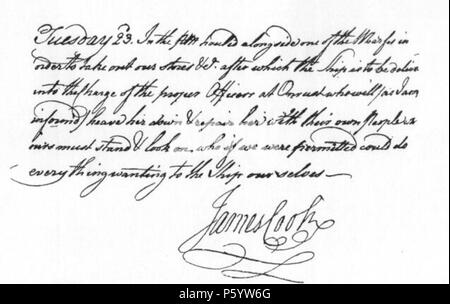 Tuesday 23. In the PM hould alongside one of the Warfes in
order to take out our stores &c. after which the Ship is to be deliver
into the Charge of the proper Officers at Onrust who will (as I am
inform'd) heave her down & repair her with their own People
ours must stand & look on, who if we were permitted could do
every thing wanting to the Ship our selves—
James Cook
alamy
alamy
Image ID: P5YW6G
www.alamy.com